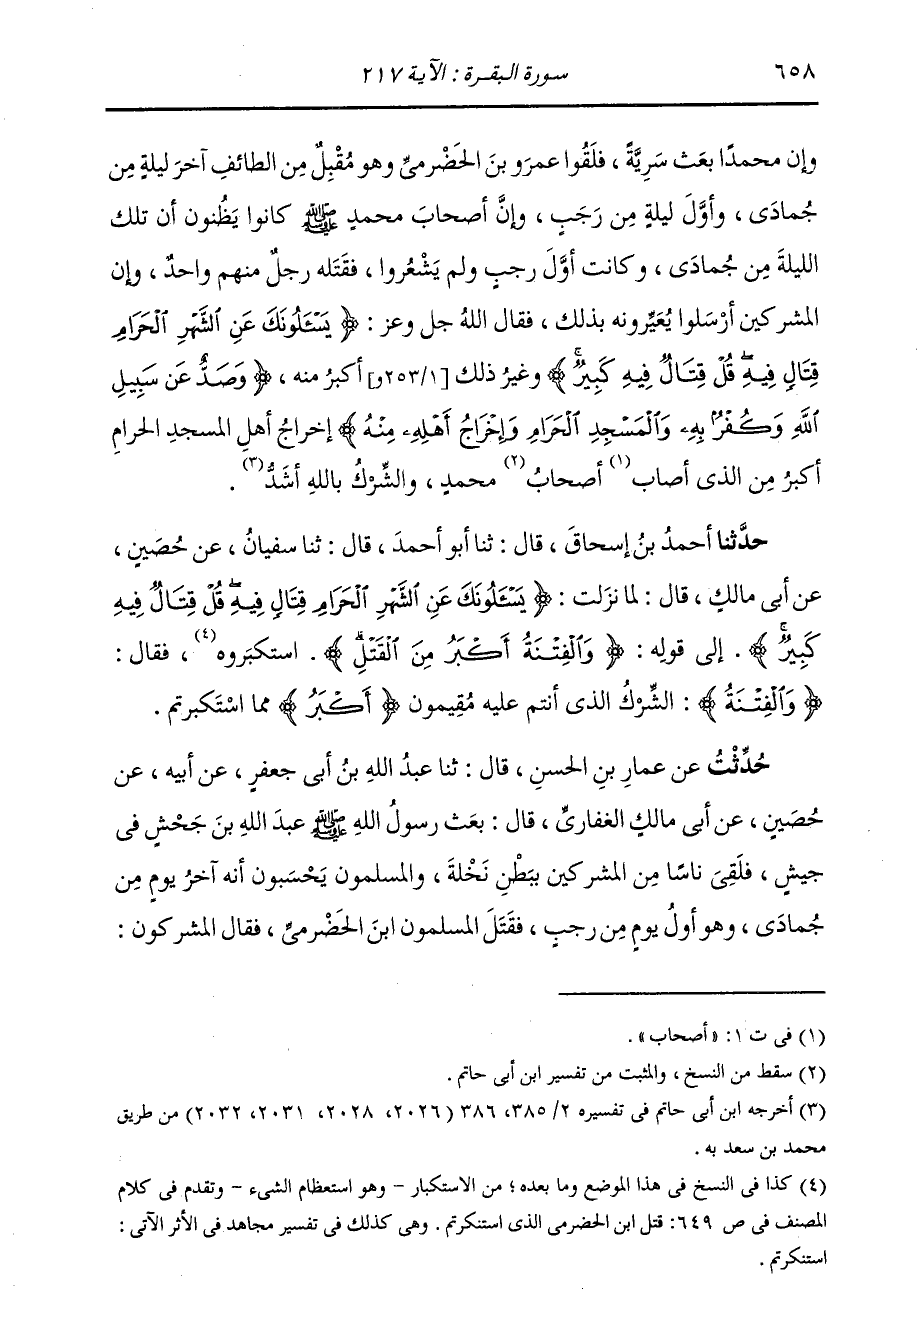 ٦٥٨ سورة البقرة : الآية ٢١٧
وإن محمدًا بعَث سَرِيَّةً ، فلَقُوا عمرَو بنَ الحَضْرميِّ وهو مُقْبِلٌ مِن الطائفِ آخرَ ليلةٍ مِن
جُمادَى ، وأوَّلَ ليلةٍ مِن رَجَبٍ ، وإنَّ أصحابَ محمدٍ ﷺ كانوا يَظُنون أن تلك
الليلةَ مِن جُمادَى ، وكانت أوَّلَ رجبٍ ولم يَشْعُروا ، فقَتَله رجلٌ منهم واحدٌ ، وإن
المشركين أرْسَلوا يُعَيِّرونه بذلك ، فقال اللهُ جل وعز : ﴿ يَسْـَٔلُونَكَ عَنِ ٱلشَّهْرِ ٱلْحَرَامِ
قِتَالٍ فِيهِۖ قُلْ قِتَالٌ فِيهِ كَبِيرٌۚ ﴾ وغيرُ ذلك [٢٥٣/١و] أكبرُ منه ، ﴿ وَصَدٌّ عَن سَبِيلِ
ٱللَّهِ وَكُفْرٌۢ بِهِۦ وَٱلْمَسْجِدِ ٱلْحَرَامِ وَإِخْرَاجُ أَهْلِهِۦ مِنْهُ ﴾ إخراجُ أهلِ المسجد الحرامِ
أكبرُ مِن الذى أصاب(١) أصحابُ(٢) محمدٍ ، والشِّرْكُ باللهِ أشَدُّ(٣) .
حدَّثنا أحمدُ بنُ إسحاقَ ، قال : ثنا أبو أحمدَ ، قال : ثنا سفيانُ ، عن حُصَينٍ ،
عن أبى مالكٍ ، قال : لما نزَلت : ﴿ يَسْـَٔلُونَكَ عَنِ ٱلشَّهْرِ ٱلْحَرَامِ قِتَالٍ فِيهِۖ قُلْ قِتَالٌ فِيهِ
كَبِيرٌۚ ﴾ . إلى قولِه : ﴿ وَٱلْفِتْنَةُ أَكْبَرُ مِنَ ٱلْقَتْلِۗ ﴾ . استكبَروه(٤) ، فقال :
﴿ وَٱلْفِتْنَةُ ﴾ : الشِّرْكُ الذى أنتم عليه مُقِيمون ﴿ أَكْبَرُ ﴾ مما اسْتَكبرتم .
حُدِّثْتُ عن عمارِ بنِ الحسنِ ، قال : ثنا عبدُ اللهِ بنُ أبى جعفرٍ ، عن أبيه ، عن
حُصَينٍ ، عن أبى مالكٍ الغفاريِّ ، قال : بعَث رسولُ اللهِ ﷺ عبدَ اللهِ بنَ جَحْشٍ فى
جيشٍ ، فلَقِىَ ناسًا مِن المشركين ببَطْنِ نَخْلةَ ، والمسلمون يَحْسَبون أنه آخرُ يومٍ مِن
جُمادَى ، وهو أولُ يومٍ مِن رجبٍ ، فقَتَلَ المسلمون ابنَ الحَضْرميِّ ، فقال المشركون :
(١) فى ت ١ : « أصحاب » .
(٢) سقط من النسخ ، والمثبت من تفسير ابن أبى حاتم .
(٣) أخرجه ابن أبى حاتم فى تفسيره ٢/ ٣٨٥، ٣٨٦ (٢٠٢٦، ٢٠٢٨، ٢٠٣١، ٢٠٣٢) من طريق
محمد بن سعد به .
(٤) كذا فى النسخ فى هذا الموضع وما بعده ؛ من الاستكبار – وهو استعظام الشىء – وتقدم فى كلام
المصنف فى ص ٦٤٩: قتل ابن الحضرمى الذى استنكرتم . وهى كذلك فى تفسير مجاهد فى الأثر الآتى :
استنكرتم .